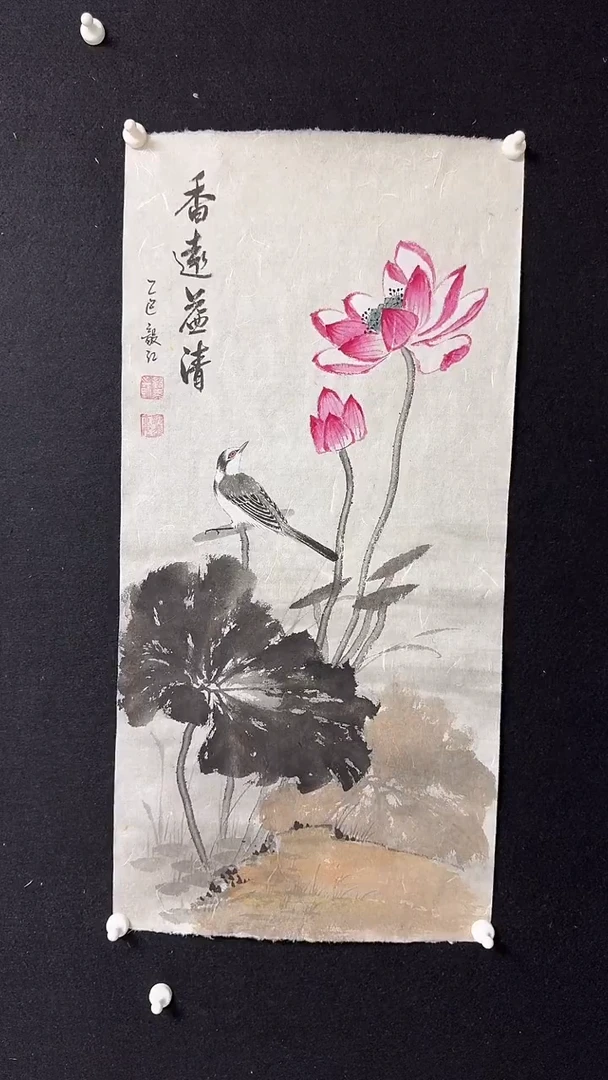 香遠益清
乙巳 毅红